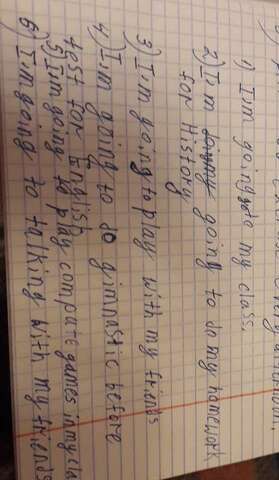 1) I'm going to my class.
2) I'm going to do my homework
for History
3) I'm going to play with my friends
4) I'm going to do gimnastic before
test for English
5) I'm going to play compute games in my
6) I'm going to talking with my friends